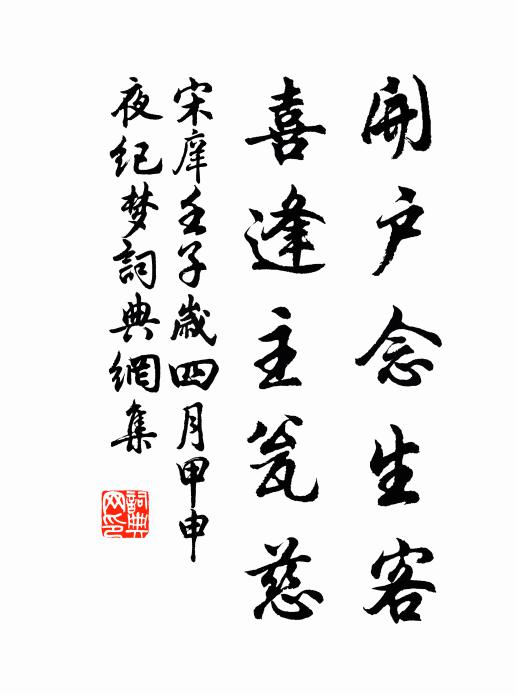 開户念生客
喜逢主瓮慈
宋庠壬子歲四月甲申
夜纪梦詞典網集
詞典网印